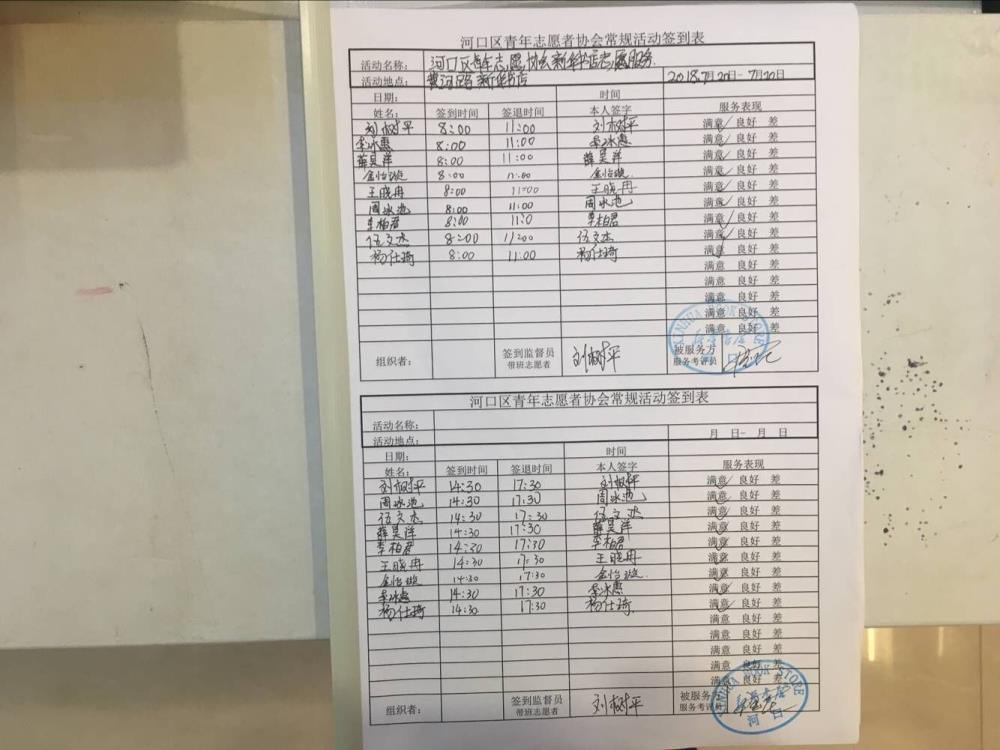 河口区青年志愿者协会常规活动签到表
活动名称： 河口区青年志愿协会新华书店志愿服务
活动地点： 黄河路新华书店 2018.7月20日-7月20日
日期： 时间
姓名： 签到时间 签退时间 本人签字 服务表现
刘树平 8:00 11:00 刘树平 满意 良好 差
李冰惠 8:00 11:00 李冰惠 满意 良好 差
薛昊洋 8:00 11:00 薛昊洋 满意 良好 差
金怡璇 8:00 11:00 金怡璇 满意 良好 差
王晓冉 8:00 11:00 王晓冉 满意 良好 差
周冰池 8:00 11:00 周冰池 满意 良好 差
李柏君 8:00 11:0 李柏君 满意 良好 差
伍文杰 8:00 11:00 伍文杰 满意 良好 差
杨仕琦 8:00 11:00 杨仕琦 满意 良好 差
满意 良好 差
满意 良好 差
满意 良好 差
满意 良好 差
满意 良好 差
XINHUA BOOK STORE
组织者： 签到监督员 刘树平 被服务方
带班志愿者 服务考评员
河口区青年志愿者协会常规活动签到表
活动名称：
活动地点： 月 日- 月 日
日期： 时间
姓名： 签到时间 签退时间 本人签字 服务表现
刘树平 14:30 17:30 刘树平 满意 良好 差
周冰池 14:30 17:30 周冰池 满意 良好 差
伍文杰 14:30 17:30 伍文杰 满意 良好 差
薛昊洋 14:30 17:30 薛昊洋 满意 良好 差
李柏君 14:30 17:30 李柏君 满意 良好 差
王晓冉 14:30 17:30 王晓冉 满意 良好 差
金怡璇 14:30 17:30 金怡璇 满意 良好 差
李冰惠 14:30 17:30 李冰惠 满意 良好 差
杨仕琦 14:30 17:30 杨仕琦 满意 良好 差
满意 良好 差
满意 良好 差
满意 良好 差
满意 良好 差
满意 良好 差
XINHUA BOOK STORE
组织者： 签到监督员 刘树平 被服务方
带班志愿者 服务考评员
河口